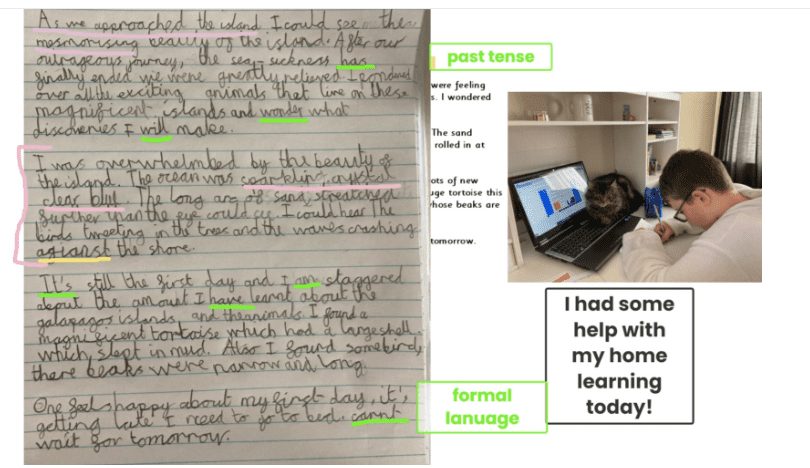 As we approached the island I could see the
mesmorising beauty of the island. After our
outrageous journey, the sea sickness has
finally ended we were greatly relieved I pondered
over all the exciting animals that live on these
magnificent islands and wonder what
discoveries I will make.
I was overwhelmbed by the beauty of
the island. The ocean was sparkling crystal
clear blue. The long arc of sand stretched
further than the eye could see. I could hear the
birds tweeting in the trees and the waves crashing
agianst the shore.
It's still the first day and I am staggered
about the amount I have learnt about the
galapagos islands, and the animals. I found a
magnificent tortoise which had a large shell
which slept in mud. Also I found some bird,
there beaks were narrow and long.
One feels happy about my first day, it's
getting late I need to go to bed. cannt
wait for tomorrow.
past tense
were feeling
s. I wondered
The sand
rolled in at
ots of new
uge tortoise this
whose beaks are
tomorrow.
I had some
help with
my home
learning
today!
formal
lanuage